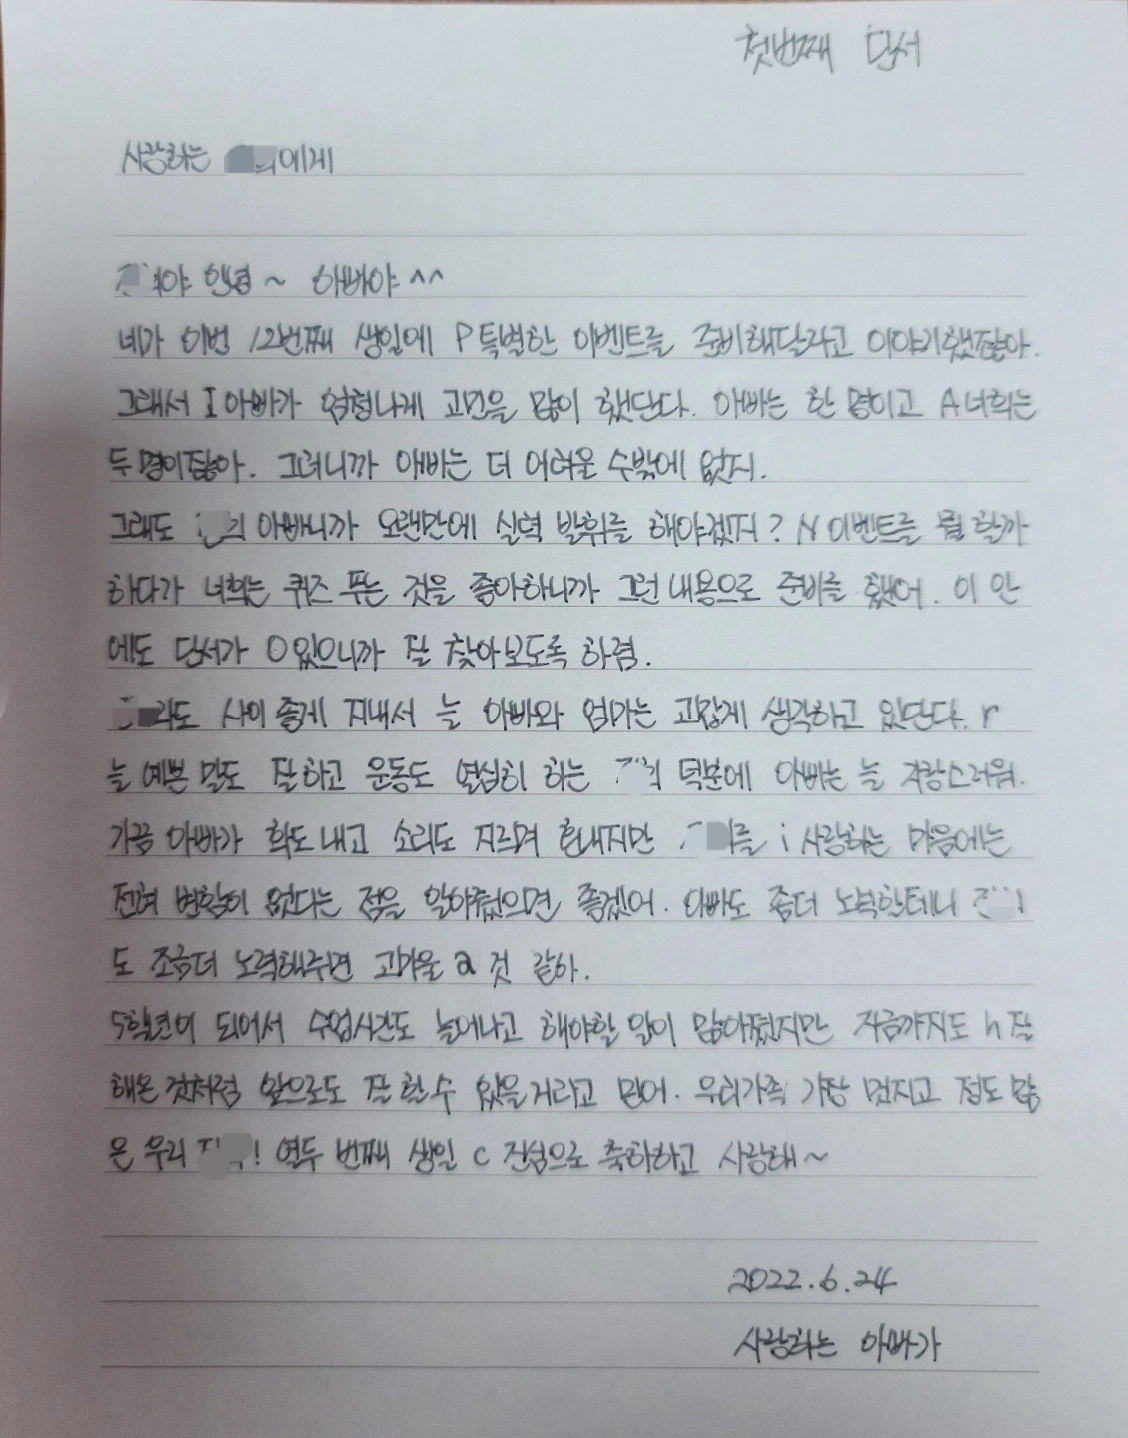 첫번째 단서
사랑하는 에게
안녕~ 아빠야^^
네가 이번 12번째 생일에 P특별한 이벤트를 준비해달라고 이야기했잖아.
그래서 I 아빠가 엄청나게 고민을 많이 했단다. 아빠는 한 명이고 A너희는
두 명이잖아. 그러니까 아빠는 더 어려울 수밖에 없지.
그래도 아빠니까 오랜만에 실력 발휘를 해야겠지? N이벤트를 뭘 할까
하다가 너희는 퀴즈 푸는 것을 좋아하니까 그런 내용으로 준비를 했어. 이 안
에도 단서가 O있으니까 잘 찾아보도록 하렴.
사이 좋게 지내서 늘 아빠와 엄마는 고맙게 생각하고 있단다. r
늘 예쁜 말도 잘하고 운동도 열심히 하는 덕분에 아빠는 늘 자랑스러워.
가끔 아빠가 화도 내고 소리도 지르며 혼내지만 i 사랑하는 마음에는
전혀 변함이 없다는 점을 알아줬으면 좋겠어. 아빠도 좀더 노력할테니
도 조금더 노력해주면 고마울 a 것 같아.
5학년이 되어서 수업시간도 늘어나고 해야할 일이 많아졌지만 지금까지도 h 잘
해온 것처럼 앞으로도 잘 할 수 있을거라고 믿어. 우리가족 가장 멋지고 정도 많
은 우리 ! 열두 번째 생일 c 진심으로 축하하고 사랑해~
2022.6.24
사랑하는 아빠가